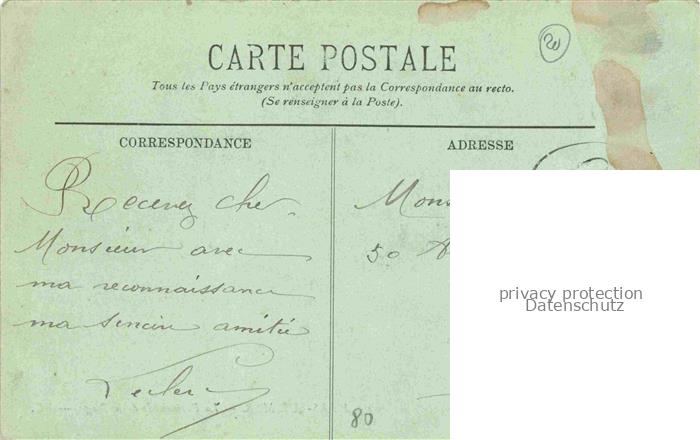 CARTE POSTALE
Tous les Pays étrangers n'acceptent pas la Correspondance au recto.
(Se renseigner à la Poste).
CORRESPONDANCE
ADRESSE
Recevez cher
Monsieur avec
ma reconnaissance
ma sincère amitié
Leclerc
Mons
50 A
80
privacy protection
Datenschutz